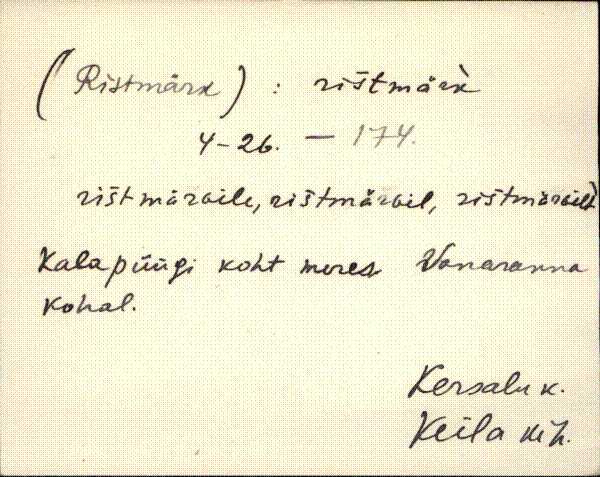 (Ristmärk) : rištmär̀k
4-26. — 174.
rištmärɢile, rištmärɢil, rištmärɢilt̀
Kalapüügi koht meres Vanaranna
kohal.
Kersalu k.
Keila kih.